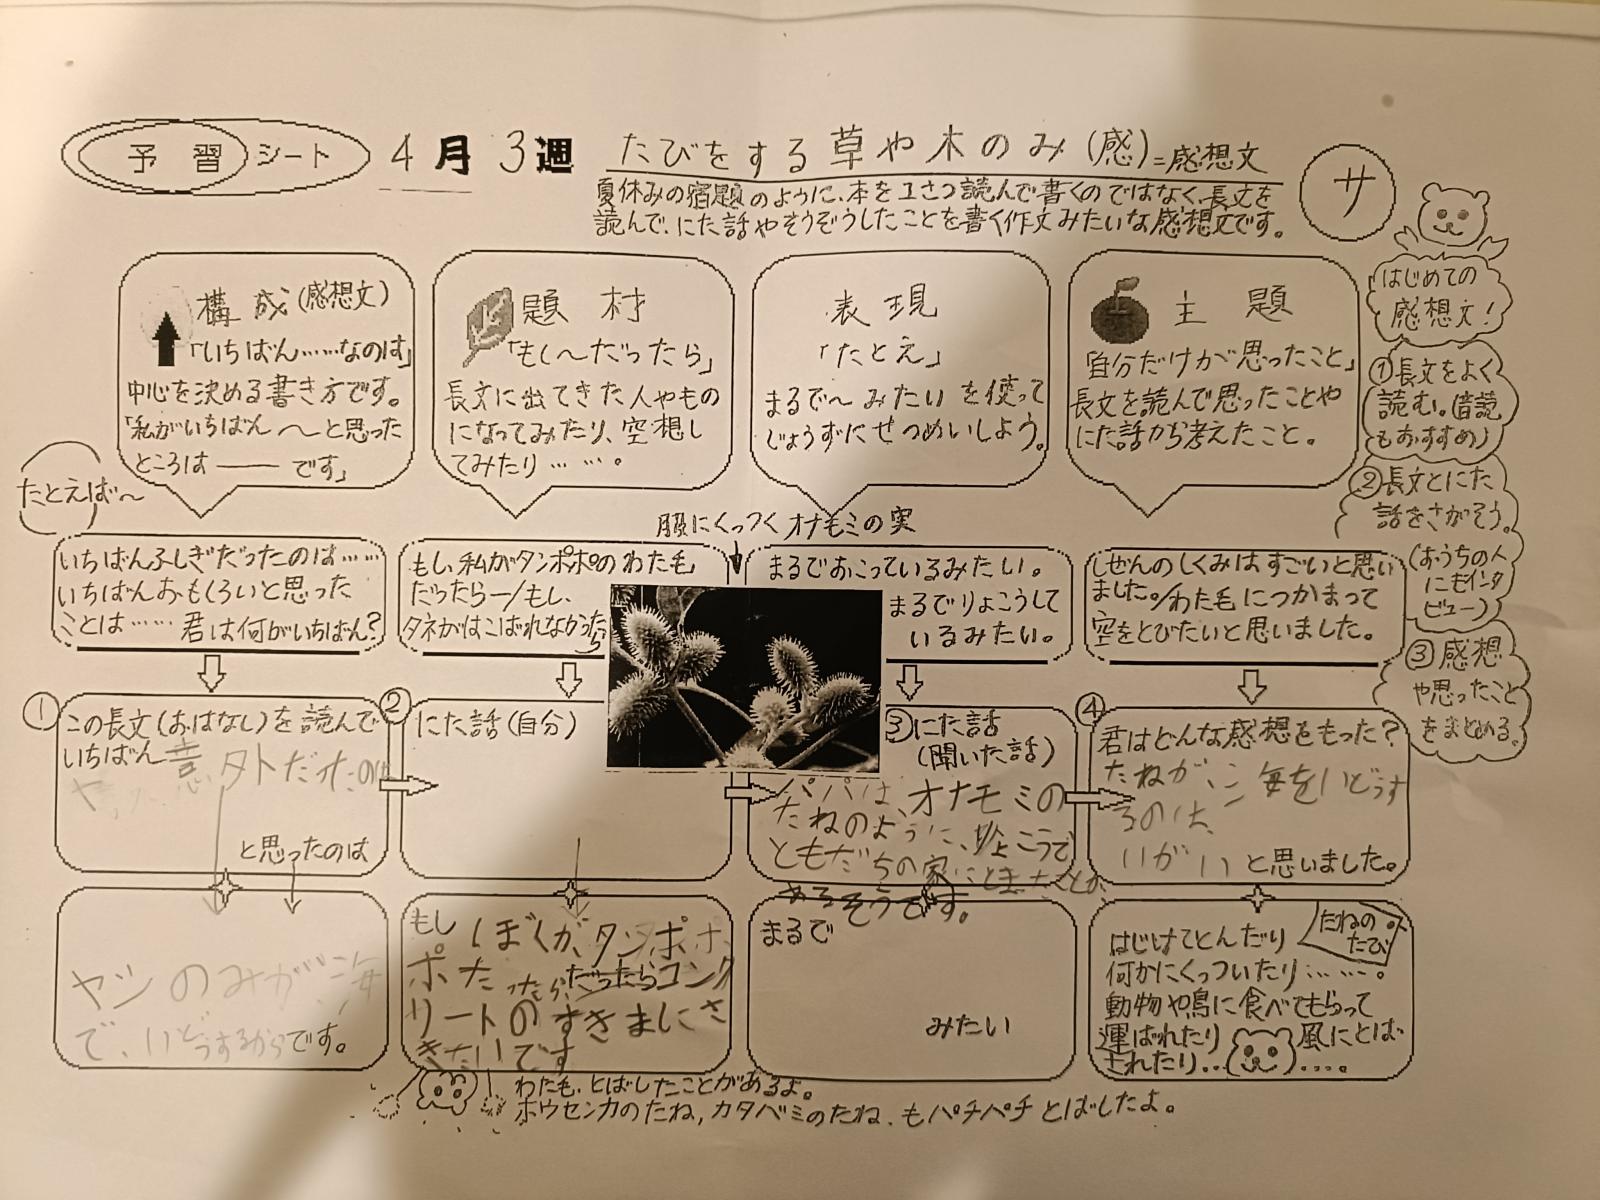 予習シート 4月3週 たびをする草や木のみ(感)=感想文
夏休みの宿題のように、本を1さつ読んで書くのではなく、長文を
読んで、にた話やそうぞうしたことを書く作文みたいな感想文です。
サ
構成(感想文)
「いちばん……なのは」
中心を決める書き方です。
「私がいちばん〜と思った
ところは―― です」
題材
「もし〜だったら」
長文に出てきた人やもの
になってみたり、空想し
てみたり……。
表現
「たとえ」
まるで〜みたいを使って
じょうずにせつめいしよう。
主題
「自分だけが思ったこと」
長文を読んで思ったことや
にた話から考えたこと。
はじめての
感想文!
①長文をよく
読む。(音読
もおすすめ)
②長文とにた
話をさがそう。
(おうちの人
にもインタ
ビュー)
③感想
や思ったこと
をまとめる。
たとえば〜
服にくっつくオナモミの実
いちばんふしぎだったのは……
いちばんおもしろいと思った
ことは……君は何がいちばん?
もし、私がタンポポのわた毛
だったら―/もし、
タネがはこばれなかったら
まるでおこっているみたい。
まるでりょこうして
いるみたい。
しぜんのしくみはすごいと思い
ました。/わた毛につかまって
空をとびたいと思いました。
①
この長文(おはなし)を読んで
いちばん意外だったのは
と思ったのは
②
にた話(自分)
③にた話
(聞いた話)
パパは、オナモミの
たねのように、
ともだちの家にとまったことが
あるそうです。
④
君はどんな感想をもった?
たねが、海をいどうす
るのは、
いがいと思いました。
ヤシのみが、海
で、いどうするからです。
もしぼくが、タンポポ
だったらコンク
リートのすきまにさ
きたいです
まるで
みたい
たねの
たび
はじけてとんだり
何かにくっついたり……。
動物や鳥に食べてもらって
運ばれたり 風にとば
されたり……。
わた毛、とばしたことがあるよ。
ホウセンカのたね,カタバミのたね、もパチパチとばしたよ。